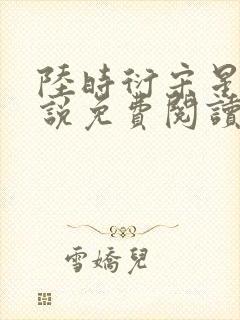 陸時衍宋星
說免費閱讀
雪嬌兒